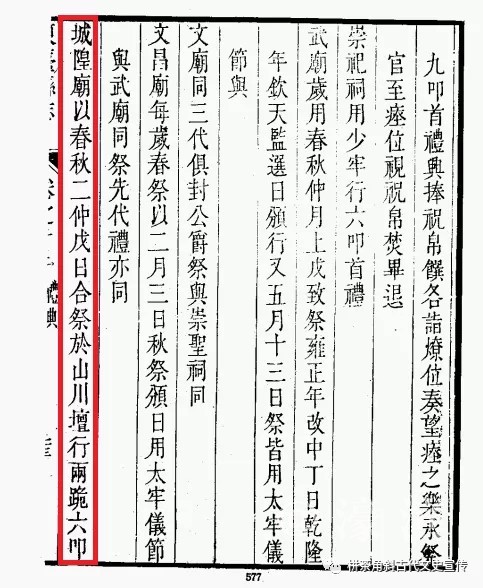 九叩首禮興捧祝帛饌各詣燎位奏望瘞之樂承祭
官至瘞位視祝帛焚畢退
崇祀祠用少牢行六叩首禮
武廟歲用春秋仲月上戊致祭雍正年改中丁日乾隆
年欽天監選日頒行又五月十三日祭皆用太牢儀
節與
文廟同三代俱封公爵祭與崇聖祠同
文昌廟每歲春祭以二月三日秋祭頒日用太牢儀節
與武廟同祭先代禮亦同
城隍廟以春秋二仲戊日合祭於山川壇行兩跪六叩
577